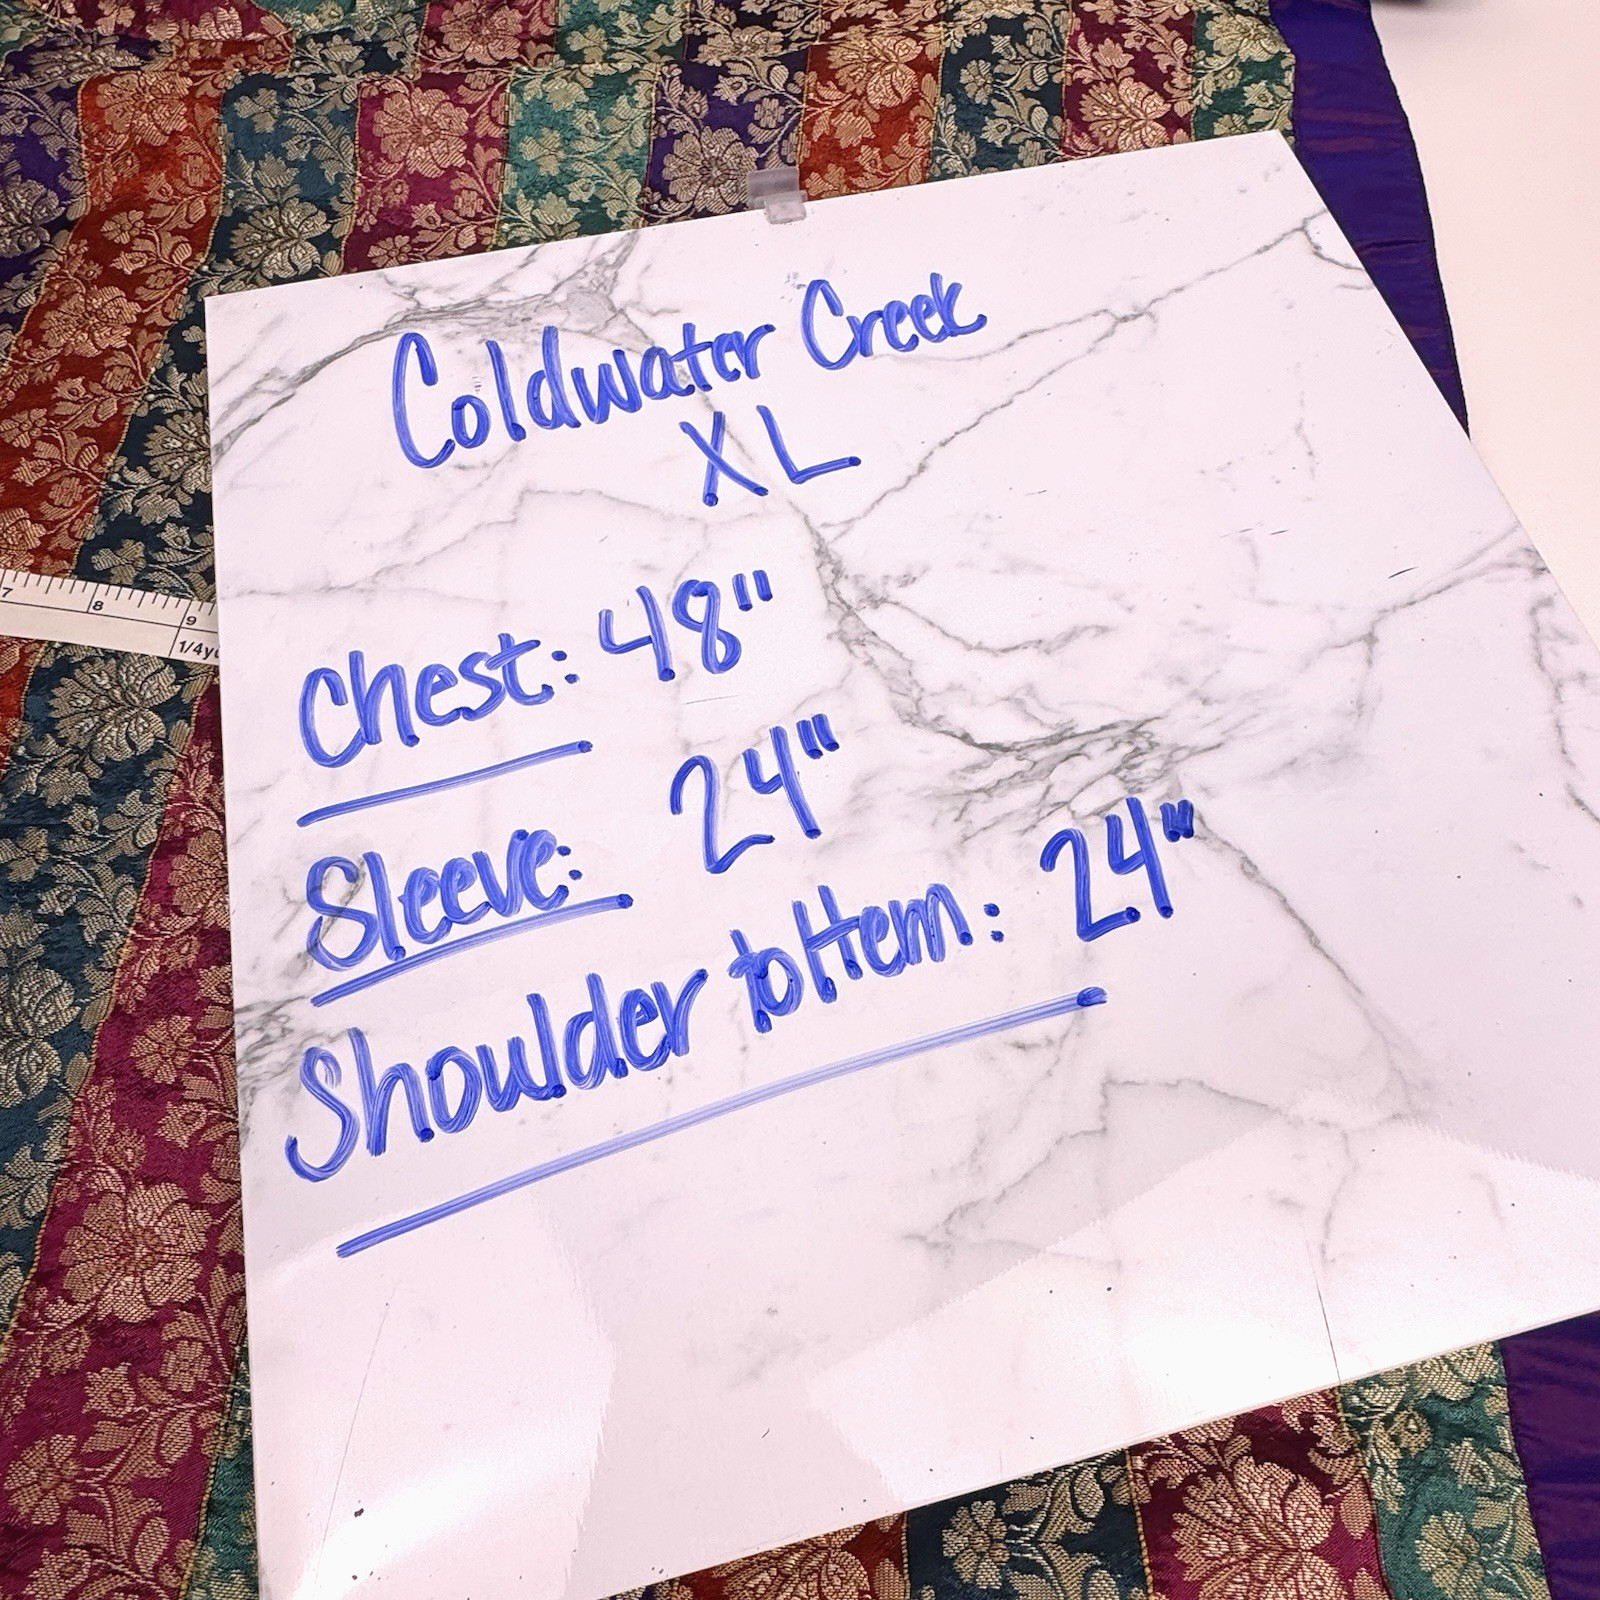 Coldwater Creek
XL
Chest: 48"
Sleeve: 24"
Shoulder to Hem: 24"
7 8 9
1/4y